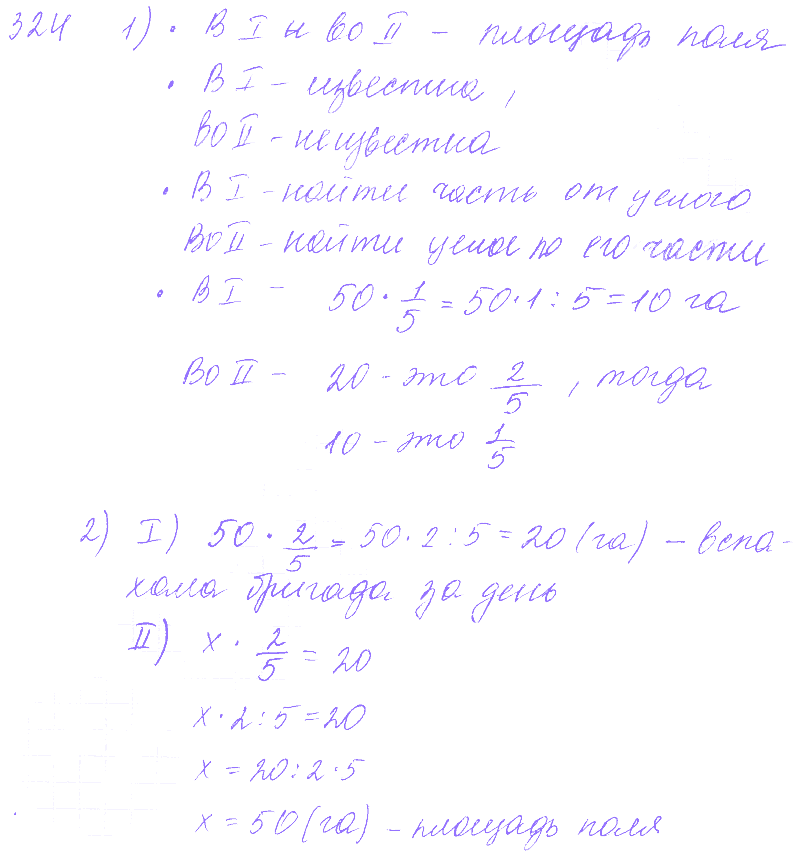 324 1) • В I и во II – площадь поля
• В I – известна,
во II – неизвестна
• В I – найти часть от целого
Во II – найти целое по его части
• В I – 50 · 1/5 = 50 · 1 : 5 = 10 га
Во II – 20 – это 2/5, тогда
10 – это 1/5
2) I) 50 · 2/5 = 50 · 2 : 5 = 20 (га) – вспа-
хала бригада за день
II) x · 2/5 = 20
x · 2 : 5 = 20
x = 20 : 2 · 5
x = 50 (га) – площадь поля